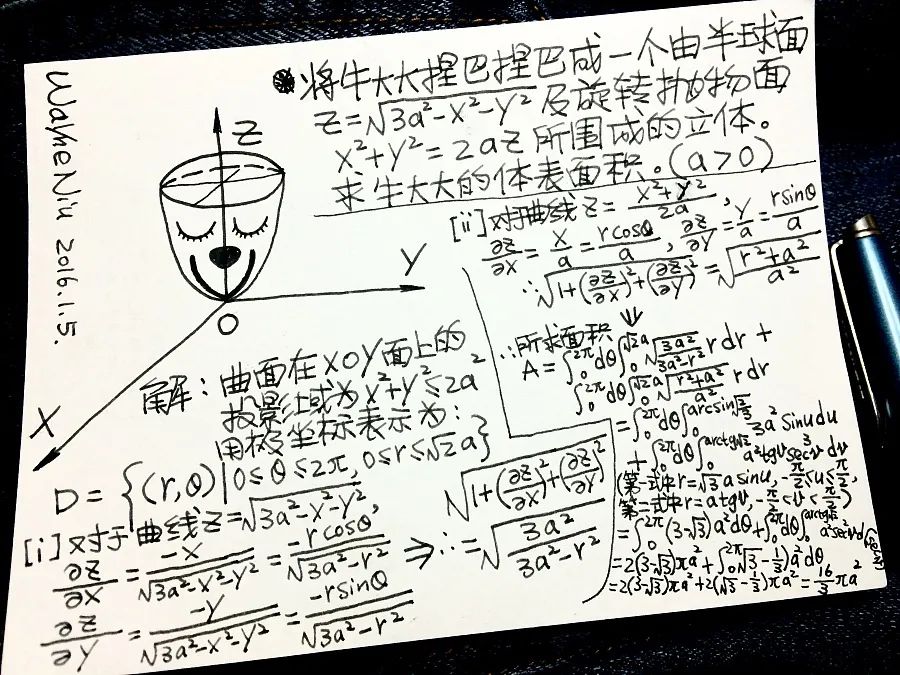 WayneNiu 2016.1.5.
●将牛大大捏巴捏巴成一个由半球面
z=√(3a²-x²-y²) 及旋转抛物面
x²+y²=2az所围成的立体。
求牛大大的体表面积。(a>0)
Z
Y
O
X
解:曲面在XOY面上的
投影域为x²+y²≤2a²
用极坐标表示为:
D={(r,θ)|0≤θ≤2π,0≤r≤√2a}
[i]对于曲线z=√(3a²-x²-y²),
∂z/∂x=-x/√(3a²-x²-y²)=-rcosθ/√(3a²-r²)
∂z/∂y=-y/√(3a²-x²-y²)=-rsinθ/√(3a²-r²)
⇒∴√(1+(∂z/∂x)²+(∂z/∂y)²)
=√(3a²/(3a²-r²))
[ii]对于曲线z=(x²+y²)/2a,
∂z/∂x=x/a=rcosθ/a,∂z/∂y=y/a=rsinθ/a
∴√(1+(∂z/∂x)²+(∂z/∂y)²)=√((r²+a²)/a²)
⇓
∴所求面积
A=∫₀^2π dθ∫₀^√2a √(3a²/(3a²-r²)) r dr +
∫₀^2π dθ∫₀^√2a √((r²+a²)/a²) r dr
=∫₀^2π dθ∫₀^arcsin√(2/3) 3a² sinu du
+∫₀^2π dθ∫₀^arctg√2 a²tgv sec³v dv
(第一式中r=√3 a sinu,-π/2≤u≤π/2,
第二式中r=a tgv,-π/2<v<π/2)
=∫₀^2π (3-√3)a²dθ+∫₀^2π dθ∫₀^arctg√2 a²sec²v d
=2(3-√3)πa²+∫₀^2π (√3-1/3)a²dθ
=2(3-√3)πa²+2(√3-1/3)πa²=16/3 πa²